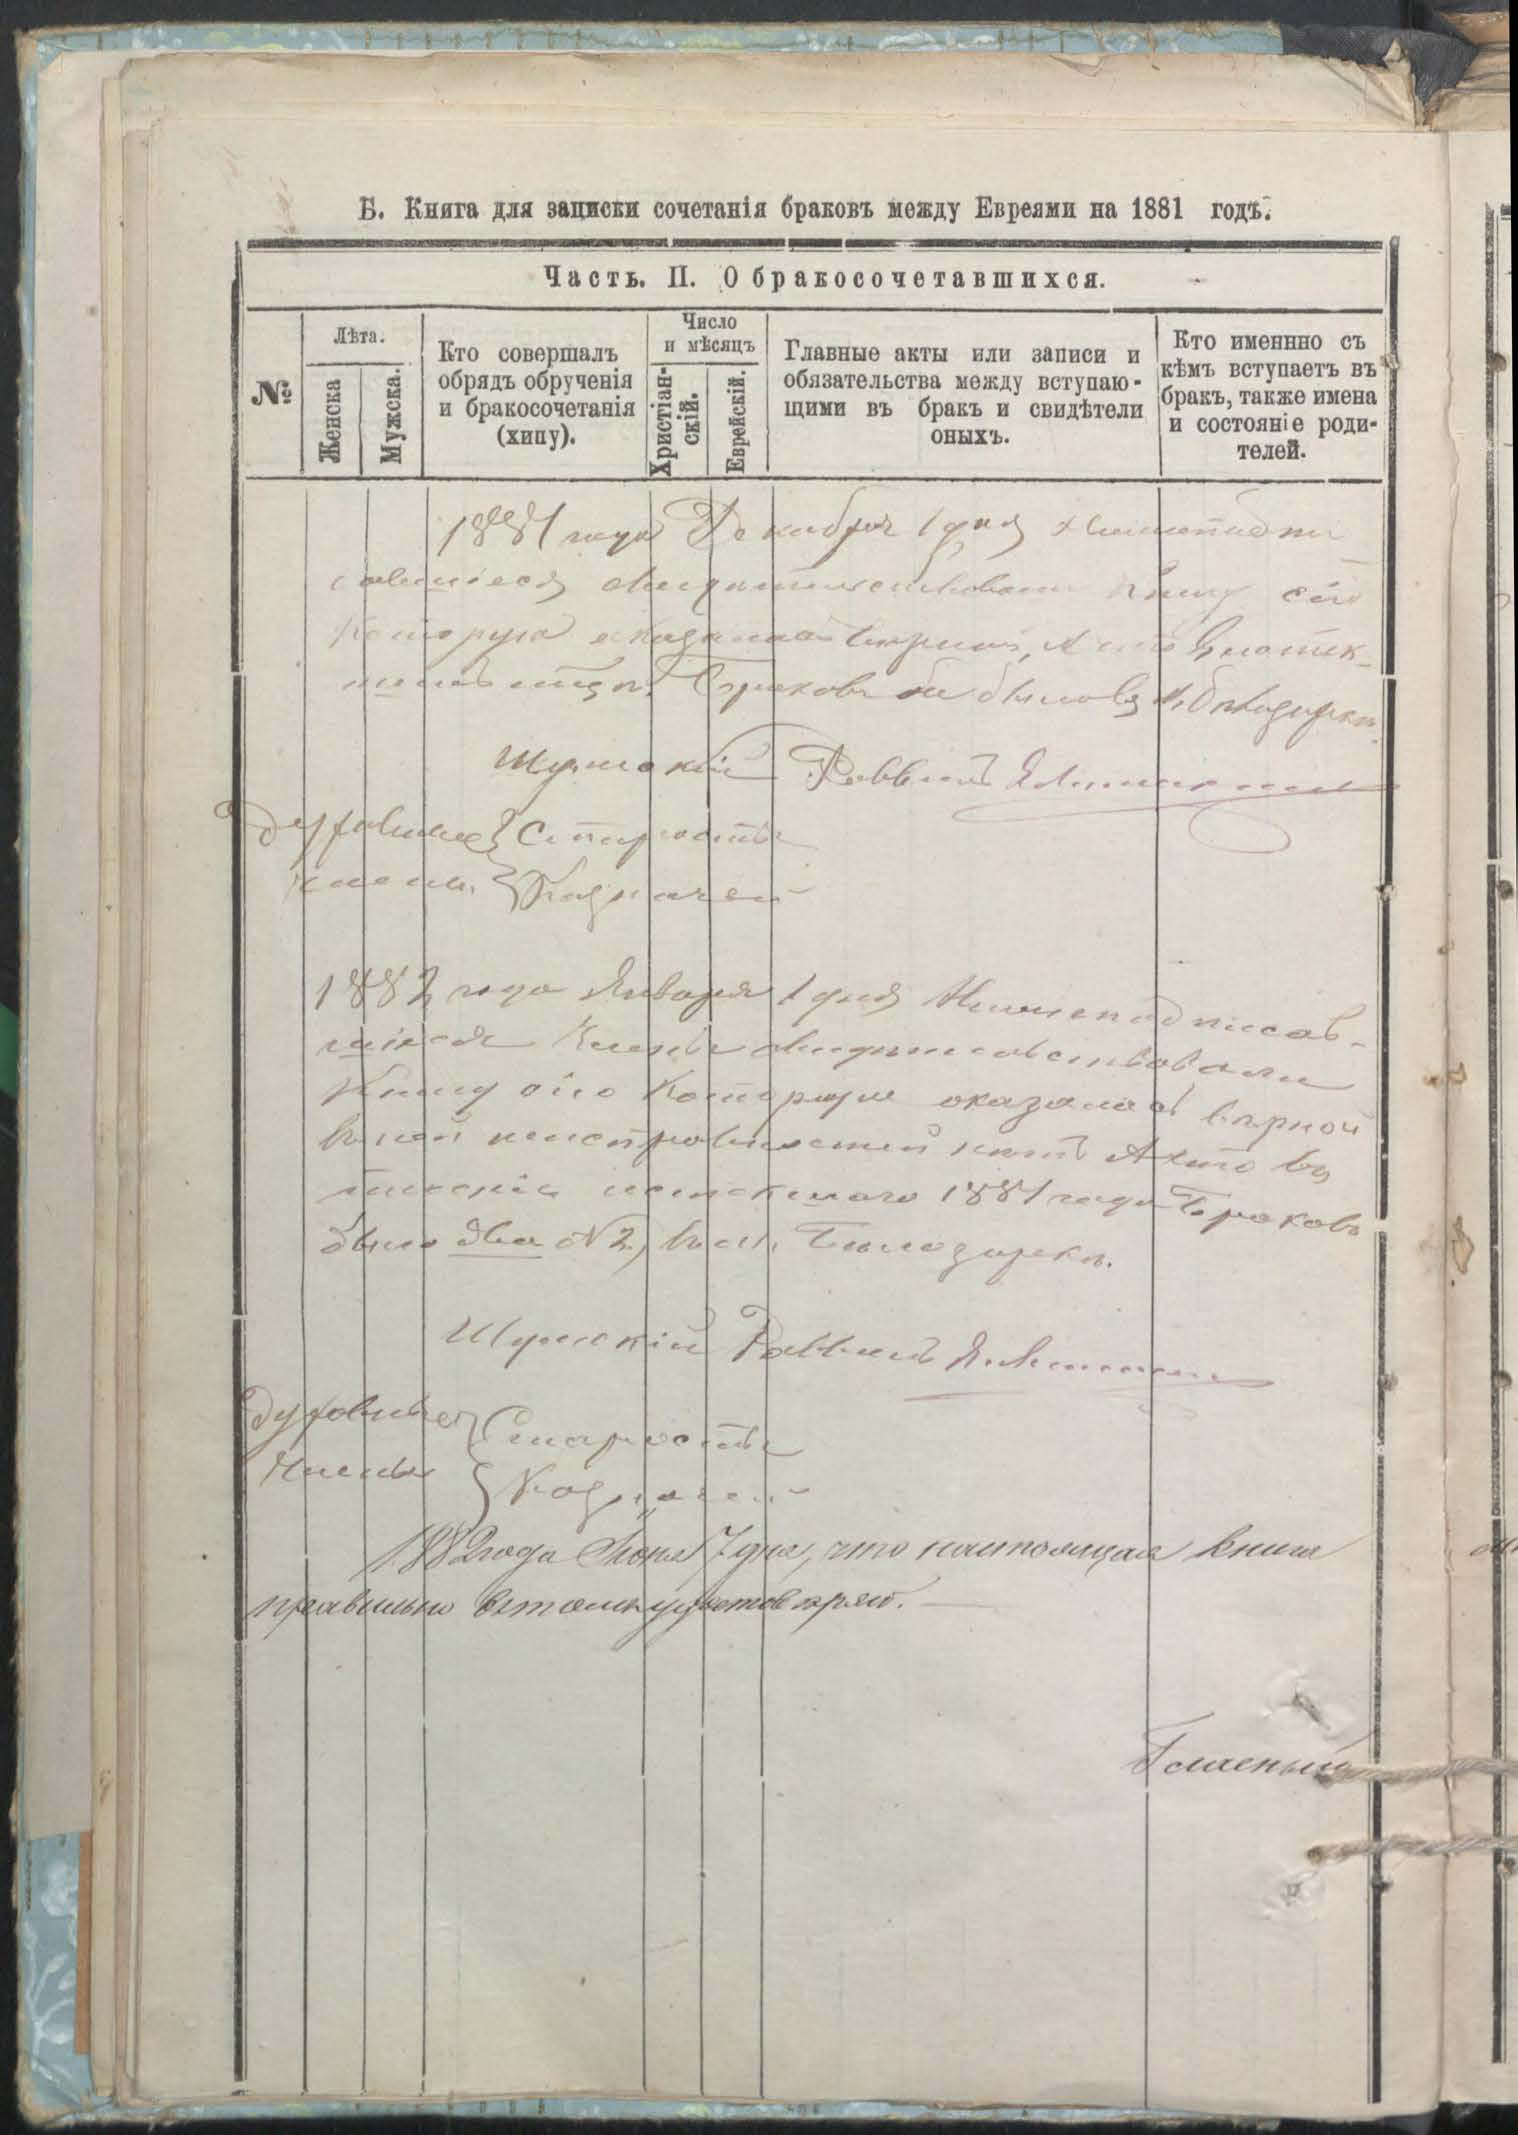 Б. Книга для записки сочетанія браковъ между Евреями на 1881 годъ.
Часть. II. О бракосочетавшихся.
№
Лѣта.
Женска
Мужска.
Кто совершалъ
обрядъ обрученія
и бракосочетанія
(хипу).
Число
и мѣсяцъ
Христіан-
скій.
Еврейскій.
Главные акты или записи и
обязательства между вступаю-
щими въ бракъ и свидѣтели
оныхъ.
Кто именнно съ
кѣмъ вступаетъ въ
бракъ, также имена
и состояніе роди-
телей.
1881 года Декабря 1 дня Нижеподпи
савшіеся свидѣтельствовали книгу сію
Которая оказалась верной, А что
Браковъ не было въ м. Бѣлозурки
Шумскій Раввинъ
Духовные Старосты
члены Казначей
1882 года Января 1 дня Нижеподписав-
шіеся Члены свидѣтельствовали
Книгу сію Которая оказалась верной
въ ней неисправностей нѣтъ А что въ
теченіе истекшаго 1881 года Браковъ
было два № 2, въ м. Белозурки.
Шумскій Раввинъ
Духовные Старосты
Члены Казначей
1882 года Іюня 7 дня, что настоящая книга
правильно въ томъ удостоверяю.